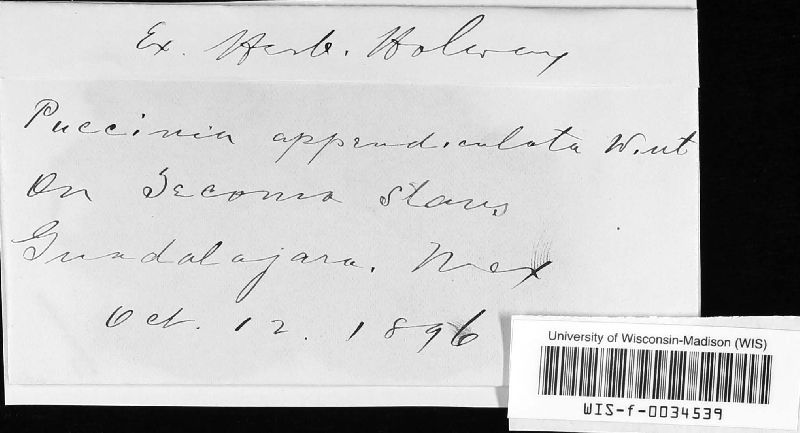 Ex. Herb. Holway
Puccinia appendiculata Wint
On Tecoma Stans
Guadalajara, Mex
Oct. 12. 1896
University of Wisconsin-Madison (WIS)
WIS-f-0034539